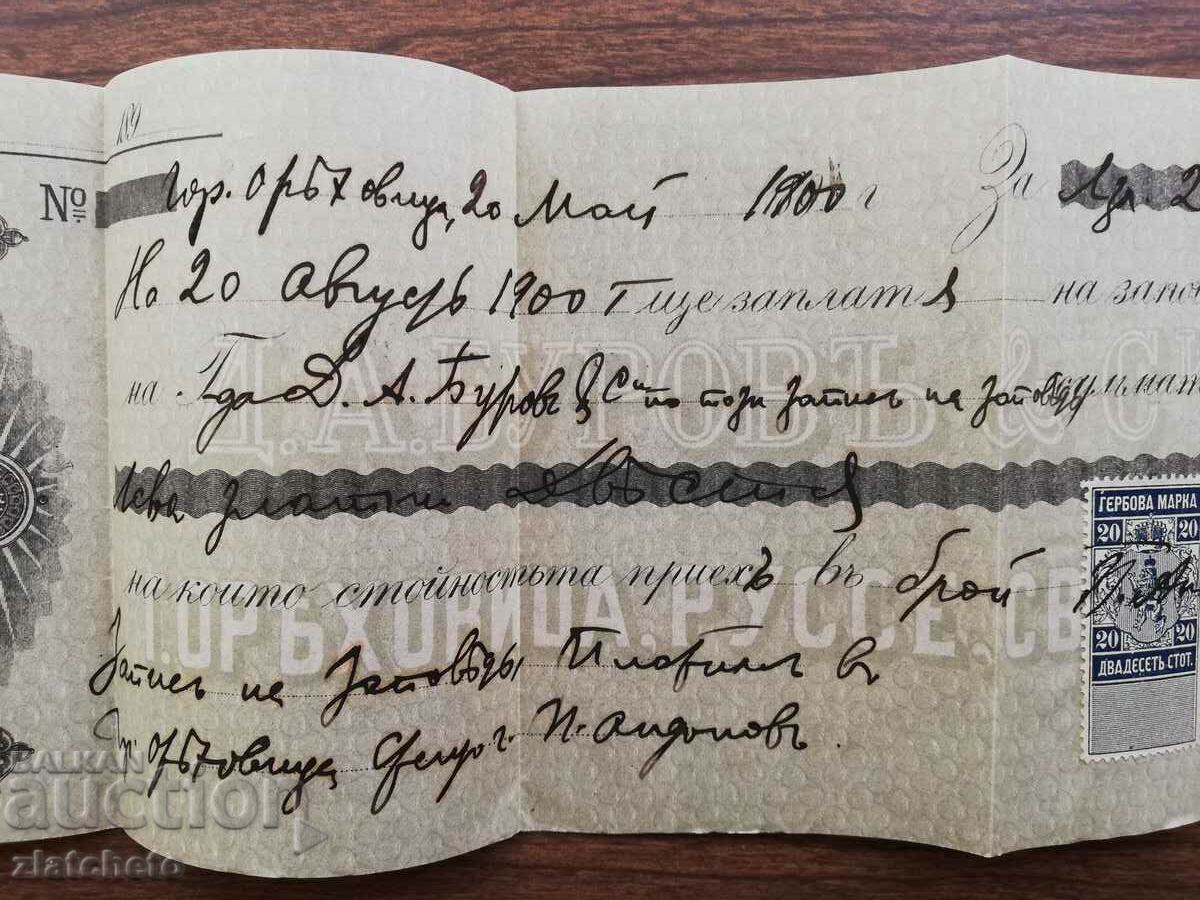 189
№ Гор. Орѣховица, 20 Май 1900 г За Лв. 2
На 20 Августъ 1900 г ще заплатя на запо
на Г-да Д. А. Буровъ & С-ие по този запис на заповѣдь суммата
Лева златни Двѣстя
на които стойностьта приехъ въ брой
Записъ на заповѣдь Платимъ въ
Гор. Орѣховица П. Андоновъ.
Д. А. БУРОВЪ & С
Г. ОРѢХОВИЦА. РУССЕ. СВ
ГЕРБОВА МАРКА
20 20
20 20
ДВАДЕСЕТЬ СТОТ.
BALKAN
auction
zlatcheto